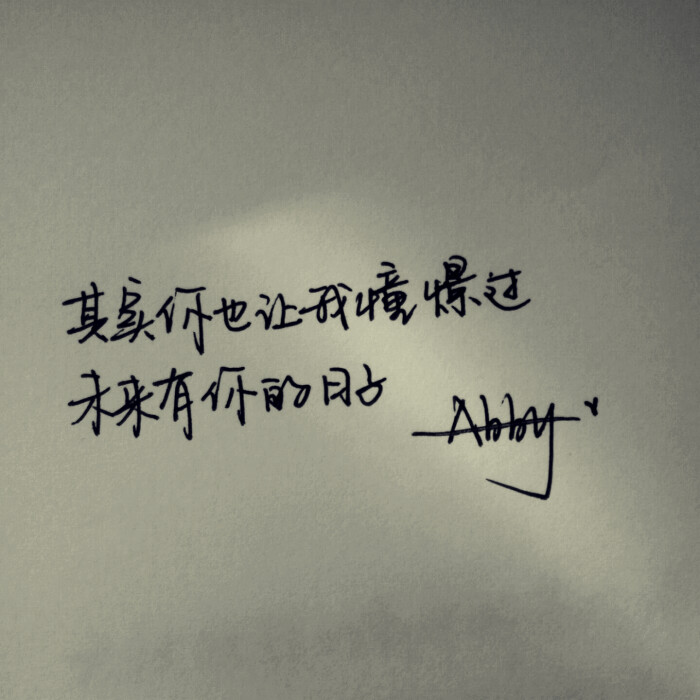 其实你也让我憧憬过
未来有你的日子
Abby